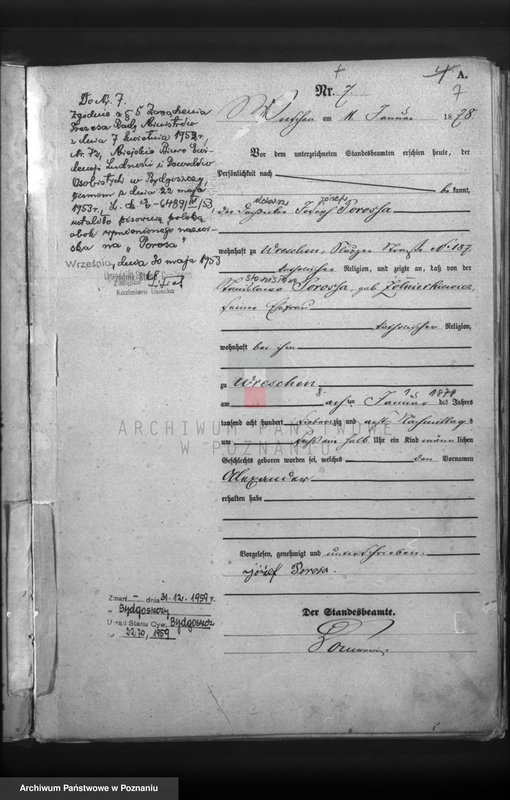 4 A.
7
Nr. 7
Wreschen am 11. Januar 1878.
Vor dem unterzeichneten Standesbeamten erschien heute, der
Persönlichkeit nach
bekannt,
józef
der Josef Porosha
wohnhaft zu Wreschen, No 187
katholischer Religion, und zeigte an, daß von der
Stanisława
Stanislawa Porosha, geb. Żołnierkiewicz,
seiner Ehefrau
katholischer Religion,
wohnhaft bei ihm
zu Wreschen
8. 1 1878
am acht Januar des Jahres
tausend acht hundert siebenzig und acht, Nachmittags
um ein halb Uhr ein Kind männlichen
Geschlechts geboren worden sei, welches den Vornamen
Alexander
erhalten habe
Vorgelesen, genehmigt und unterschrieben.
józef Porosa.
Der Standesbeamte.
Do Nr. 7.
Zgodnie z § 5 Zarządzenia
Prezesa Rady Ministrów
z dnia 7 kwietnia 1952 r.
Nr. 72, Miejskie Biuro Ewi-
dencji Ludności i Dowodów
Osobistych w Bydgoszczy
pismem z dnia 22 maja
1953 r., L. dz. E-6489/III/53
ustaliło pisownię polską
obok wymienionego nazwi-
ska na „Porosa"
Września, dnia 30 maja 1953
Urzędnik Stanu
Kazimiera Lisiecka
Zmarł dnia 31.12.1959 r.
w Bydgoszczy
Urząd Stanu Cyw. Bydgoszcz
nr 2270/1959
ARCHIWUM PAŃSTWOWE
W POZNANIU
Archiwum Państwowe w Poznaniu